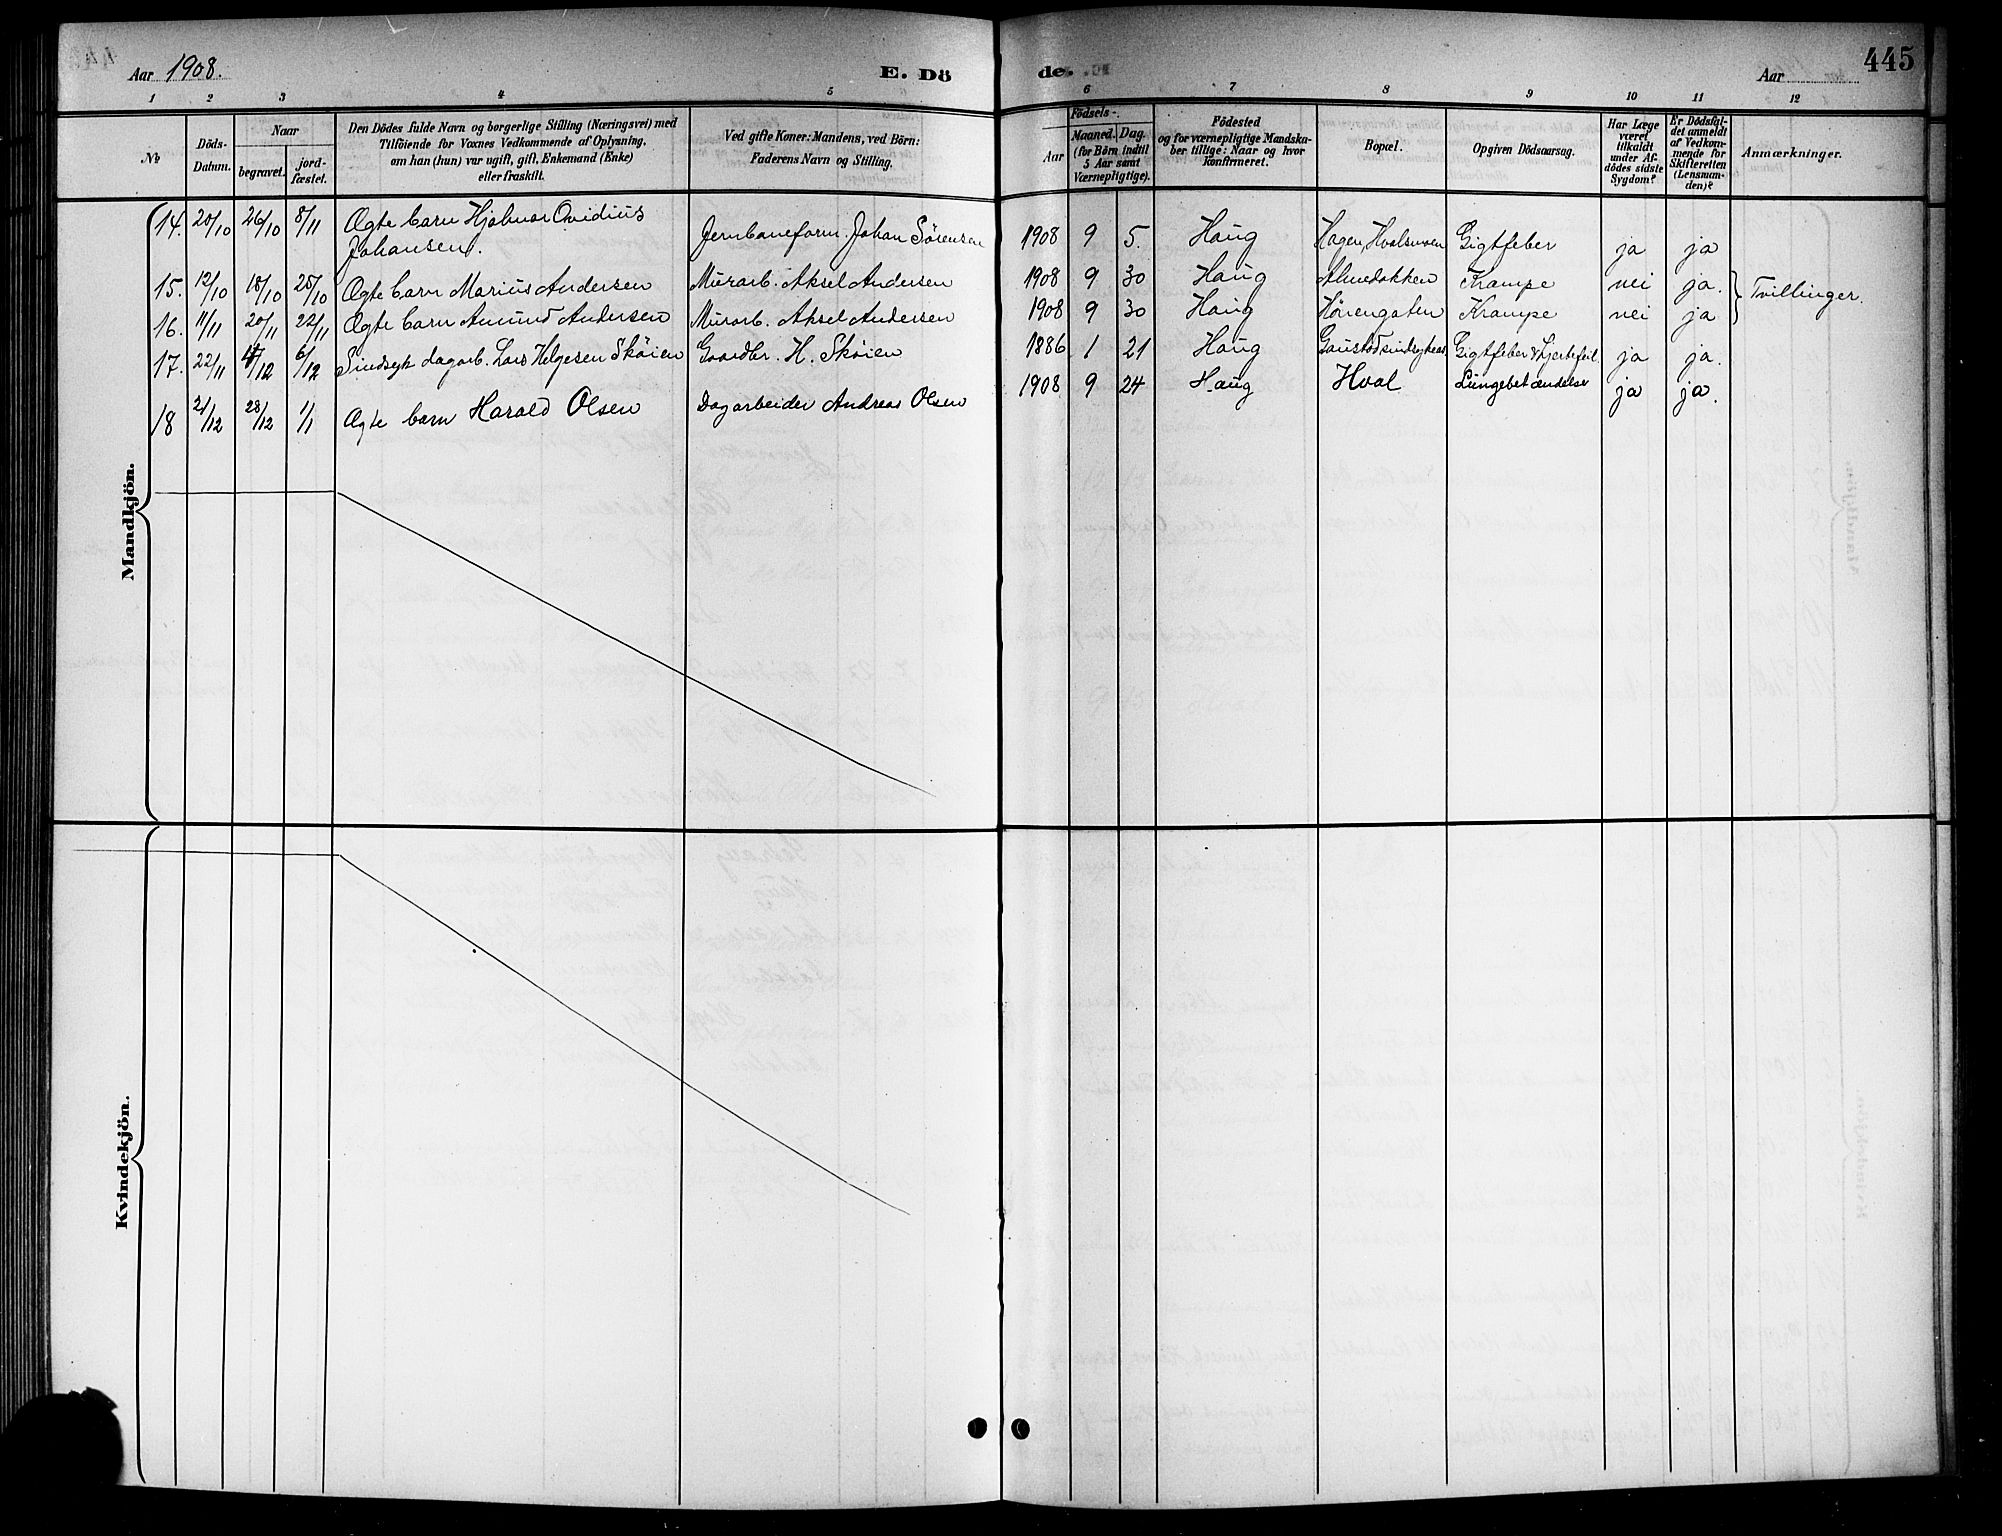 Aar 1908. E. Dö de. Aar 445
1 2 3 4 5 6 7 8 9 10 11 12
No
Döds-
Datum.
Naar
begravet.
jord-
fæstet.
Den Dödes fulde Navn og borgerlige Stilling (Næringsvei) med
Tilföiende for Voxnes Vedkommende af Oplysning,
om han (hun) var ugift, gift, Enkemand (Enke)
eller fraskilt.
Ved gifte Koner: Mandens, ved Börn:
Faderens Navn og Stilling.
Födsels-
Aar
Maaned. Dag.
(for Börn indtil
5 Aar samt
Værnepligtige).
Födested
og for værnepligtige Mandska-
ber tillige: Naar og hvor
konfirmeret.
Bopæl.
Opgiven Dödsaarsag.
Har Læge
været
tilkaldt
under Af-
dödes sidste
Sygdom?
Er Dödsfal-
det anmeldt
af Vedkom-
mende for
Skifteretten
(Lensman-
den)?
Anmærkninger.
Mandkjön.
14. 20/10 26/10 8/11 Ægte barn Hjalmar Ovidius
Johansen. Jernbaneform. Johan Sörensen 1908 9 5. Haug Hagen, Hvalsmoen Gigtfeber ja ja
15. 12/10 18/10 25/10 Ægte barn Marius Andersen Murarb. Aksel Andersen 1908 9 30 Haug Almebakken Krampe nei ja. Tvillinger.
16. 11/11 20/11 22/11 Ægte barn Amund Andersen Murarb. Aksel Andersen 1908 9 30 Haug Hönengaten Krampe nei ja
17. 22/11 /12 6/12 Sindsyk dagarb. Lars Helgesen Sköien Gaardbr. H. Sköien 1886 1 21 Haug Gaustad sindsykeas. Gigtfeber & hjertefeil ja ja.
18 21/12 28/12 1/1 Ægte barn Harald Olsen Dagarbeider Andreas Olsen 1908 9 24 Haug Hval Lungebetændelse ja ja.
Kvindekjön.